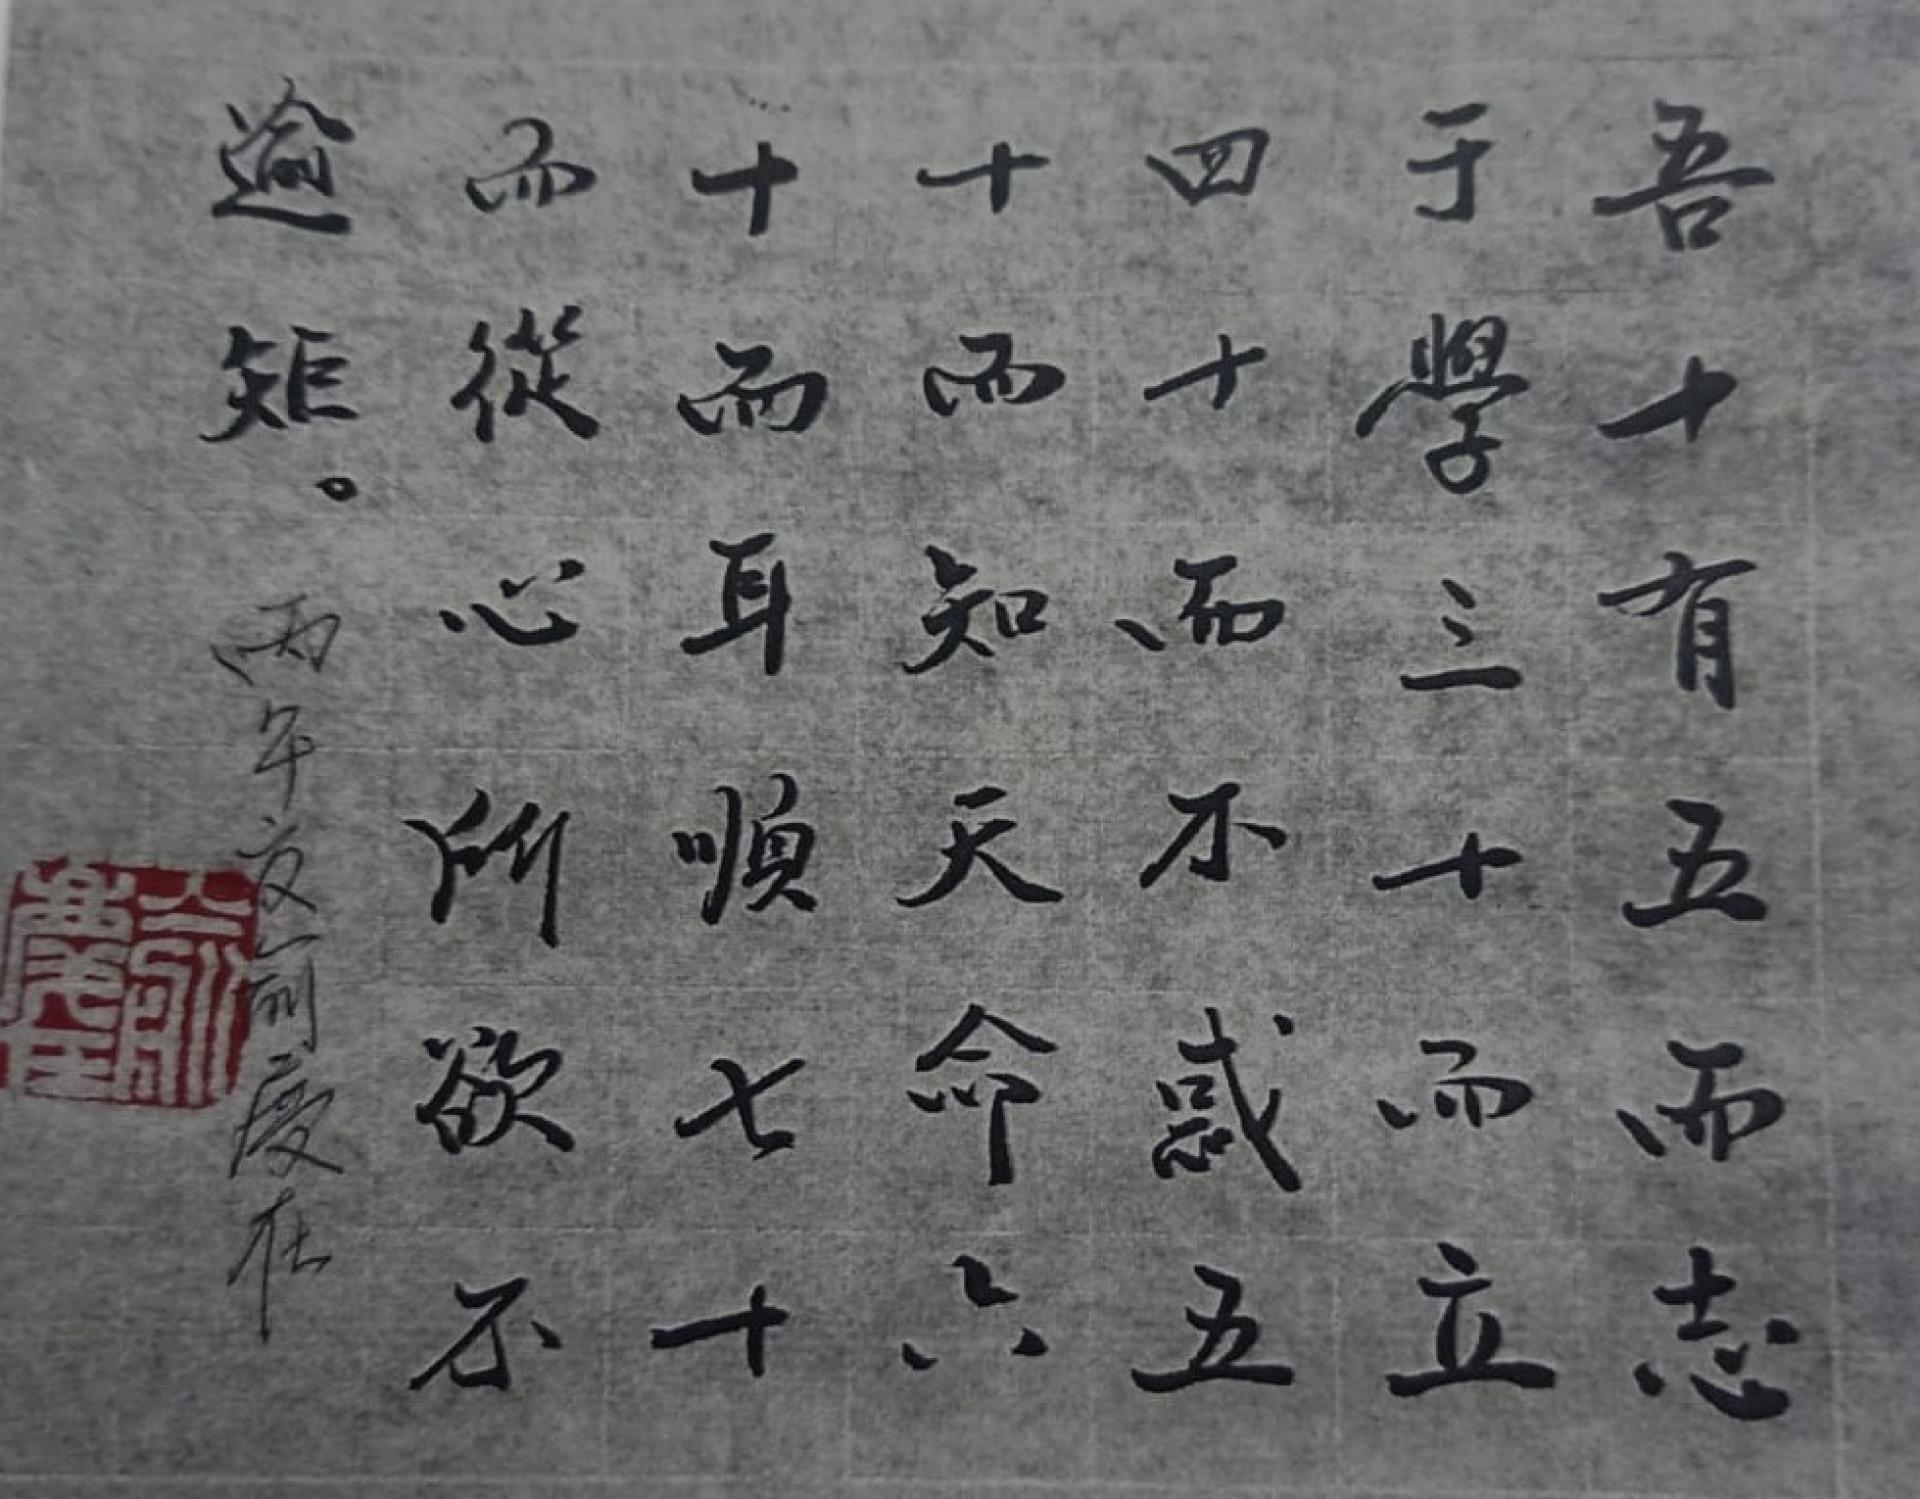 吾十有五而志
于學三十而立
四十而不惑五
十而知天命六
十而耳順七十
而從心所欲不
逾矩。
丙午夏俞慶在